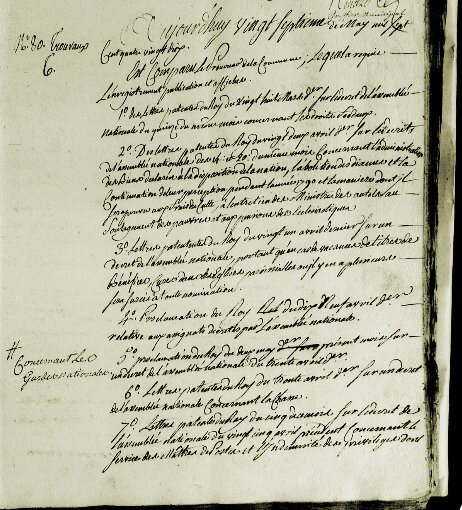 Aujourdhuy vingt septieme
de May mil sept
Cent quatre vingt dix
Est Comparu le Procureur de la Commune, Lequel a requis
L'enregistrement publication et affiches
1° Des Lettres patentes du Roy du Vingt huit Mars der sur le decret de l'assemblée
nationale du quinze du même mois concernant les droits feodaux.
2° Des lettres patentes du Roy du vingt deux avril der sur les decrets
de l'assemblée nationale des 14 et 20 du même mois Concernant l'administration
des biens declarés a la disposition de la nation, l'abolition des dixmes et la
Continuation de leur perception pendant l'année 1790 et la maniere dont il
sera pourvu aux frais du Culte, à l'entretien des Ministres des autels au
soulagement des pauvres et aux pensions des Eclesiastiques
3° Lettres patentes du Roy du vingt un avril dernier sur un
decret de l'assemblée nationale, portant qu'en cas de vacance de titres de
Bénéfices Cures dans des Eglises paroissiales où il y en a plusieurs
sera sursis à toute nomination.
4° Proclamation du Roy du dix neuf avril der
relative aux assignats decretés par l'assemblée nationale.
5° proclamation du Roy du deux may présent mois sur
un decret de l'assemblée nationale du trente avril der
#
Concernant les
Gardes nationales
6° Lettres patentes du Roy du trente avril der sur un decret
de l'assemblée nationale Concernant la Chasse.
7° Lettres patentes du Roy du cinq du mois sur le decret de
l'assemblée nationale du vingt cinq avril précédent concernant le
service des Maîtres de Postes et l'Indemnité des privileges dont